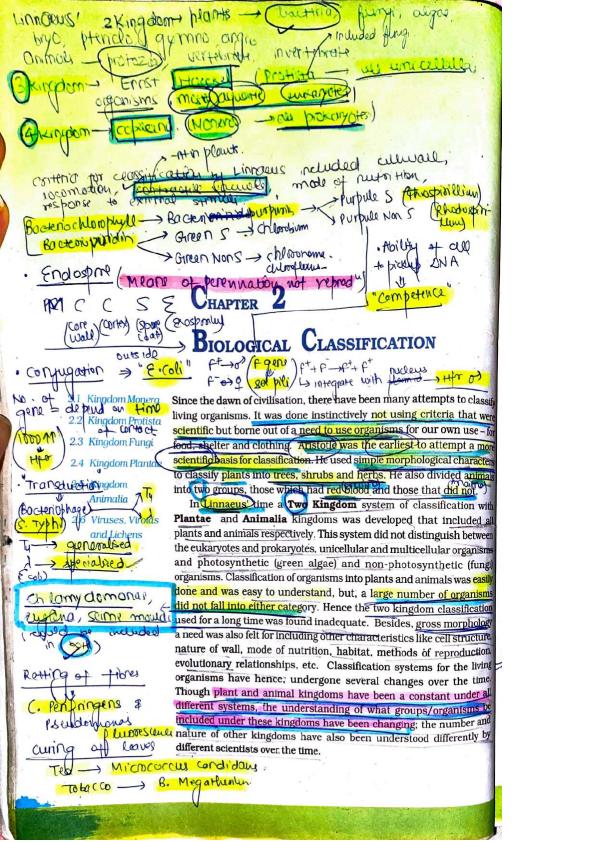 Linnaeus' 2 Kingdom → plants → bacteria, fungi, algae
bryo, pterido, gymno angio → included fungi
Animals — protozoa vertebrate, invertebrate
③ Kingdom → Ernst Haeckel (Protista → all unicellular
organisms (mostly aquatic eukaryotes)
④ Kingdom → Copeland (Monera → all prokaryotes)
→ N+ in plants.
criteria for classification by Linnaeus included cell wall,
locomotion, contractile vacuole, mode of nutrition,
response to external stimuli
Bacteriochlorophyll → Bacterio purpurin → Purple S (Rhodospirillum)
Bacterioviridin → Purple Non S →
→ Green S → chlorobium
→ Green Non S → chloronema
• Ability of cell
to pickup DNA
"Competence"
• Endospore (Means of perennation not reprod)
C C S E
(Core wall) (Cortex) (Spore coat) (Exosporium)
outside
CHAPTER 2
BIOLOGICAL CLASSIFICATION
• Conjugation ⇒ "E. Coli"
F gene
sex pili
F⁺ + F⁻ → F⁺ + F⁺
→ integrate with nucleus → Hfr ♂
No. of
gene = depend on time
of contact
Hfr
2.1 Kingdom Monera
2.2 Kingdom Protista
2.3 Kingdom Fungi
2.4 Kingdom Plantae
Kingdom
Animalia
2.6 Viruses, Viroids
and Lichens
"Transduction"
(Bacteriophage)
(S. Typhi)
→ generalised
λ → specialised
E. coli
Chlamydomonas,
euglena, slime moulds
included
in 5K
Retting of fibres
C. Perfringens &
Pseudomonas
fluorescence
curing of leaves
Tea → Micrococcus candidans
Tobacco → B. Megatherium
Since the dawn of civilisation, there have been many attempts to classify
living organisms. It was done instinctively not using criteria that were
scientific but borne out of a need to use organisms for our own use – for
food, shelter and clothing. Aristotle was the earliest to attempt a more
scientific basis for classification. He used simple morphological characters
to classify plants into trees, shrubs and herbs. He also divided animals
into two groups, those which had red blood and those that did not.
In Linnaeus' time a Two Kingdom system of classification with
Plantae and Animalia kingdoms was developed that included all
plants and animals respectively. This system did not distinguish between
the eukaryotes and prokaryotes, unicellular and multicellular organisms
and photosynthetic (green algae) and non-photosynthetic (fungi)
organisms. Classification of organisms into plants and animals was easily
done and was easy to understand, but, a large number of organisms
did not fall into either category. Hence the two kingdom classification
used for a long time was found inadequate. Besides, gross morphology
a need was also felt for including other characteristics like cell structure,
nature of wall, mode of nutrition, habitat, methods of reproduction,
evolutionary relationships, etc. Classification systems for the living
organisms have hence, undergone several changes over the time.
Though plant and animal kingdoms have been a constant under all
different systems, the understanding of what groups/organisms be
included under these kingdoms have been changing; the number and
nature of other kingdoms have also been understood differently by
different scientists over the time.